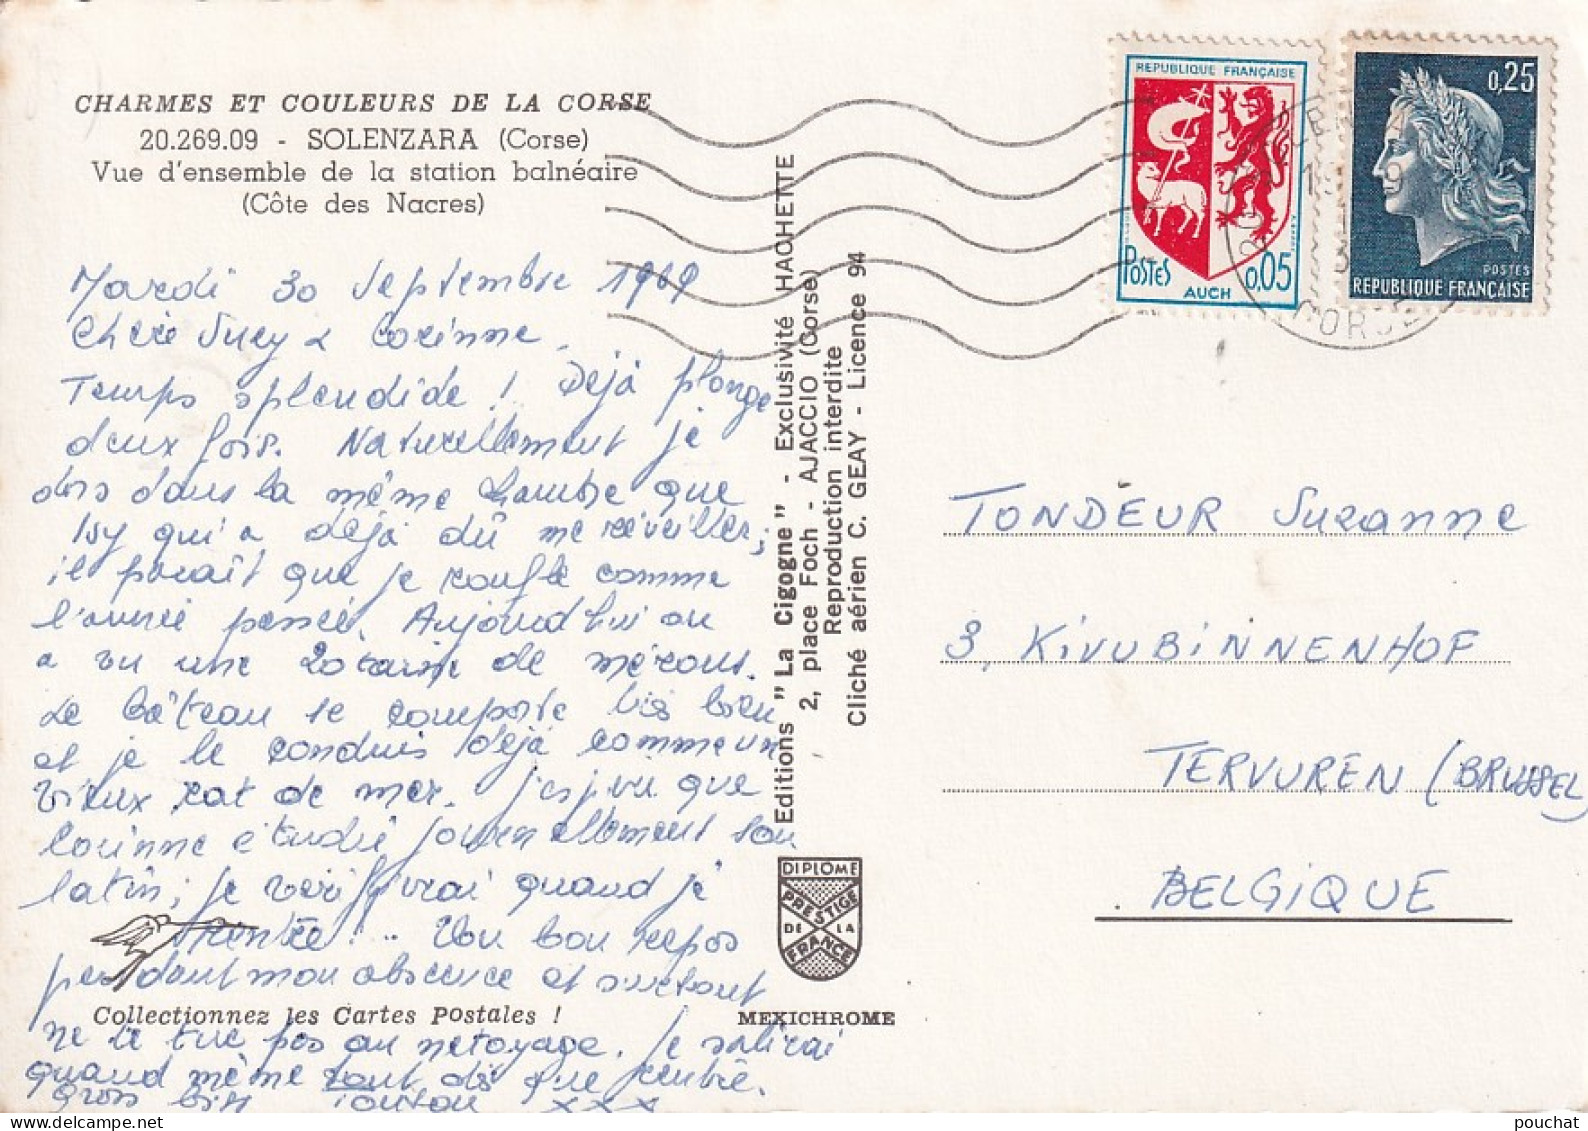 CHARMES ET COULEURS DE LA CORSE
20.269.09 - SOLENZARA (Corse)
Vue d'ensemble de la station balnéaire
(Côte des Nacres)
Mardi 30 Septembre 1969
Chère Sucy & Corinne.
Temps splendide ! Déjà plongé
deux fois. Naturellement je
dors dans la même chambre que
Isy qui a déjà dû me réveiller;
il paraît que je ronfle comme
l'année passée. Aujourd'hui on
a vu une 20taine de mérous.
Le bâteau se comporte très bien
et je le conduis déjà comme un
vieux rat de mer. J'espère que
Corinne étudie journellement son
latin; je vérifierai quand je
rentre !.. Bon repos
pendant mon absence et surtout
ne te tue pas au nettoyage. Je salirai
quand même tout dès que rentré.
Gros bisy Toutou xxx
Collectionnez les Cartes Postales !
Editions "La Cigogne" - Exclusivité HACHETTE
2, place Foch - AJACCIO (Corse)
Reproduction interdite
Cliché aérien C. GEAY - Licence 94
DIPLOME
PRESTIGE
DE LA
FRANCE
MEXICHROME
REPUBLIQUE FRANÇAISE
POSTES
AUCH
0,05
0,25
POSTES
REPUBLIQUE FRANÇAISE
CORSE
TONDEUR Suzanne
3, KIVUBINNENHOF
TERVUREN (BRUSSEL)
BELGIQUE
pouchat